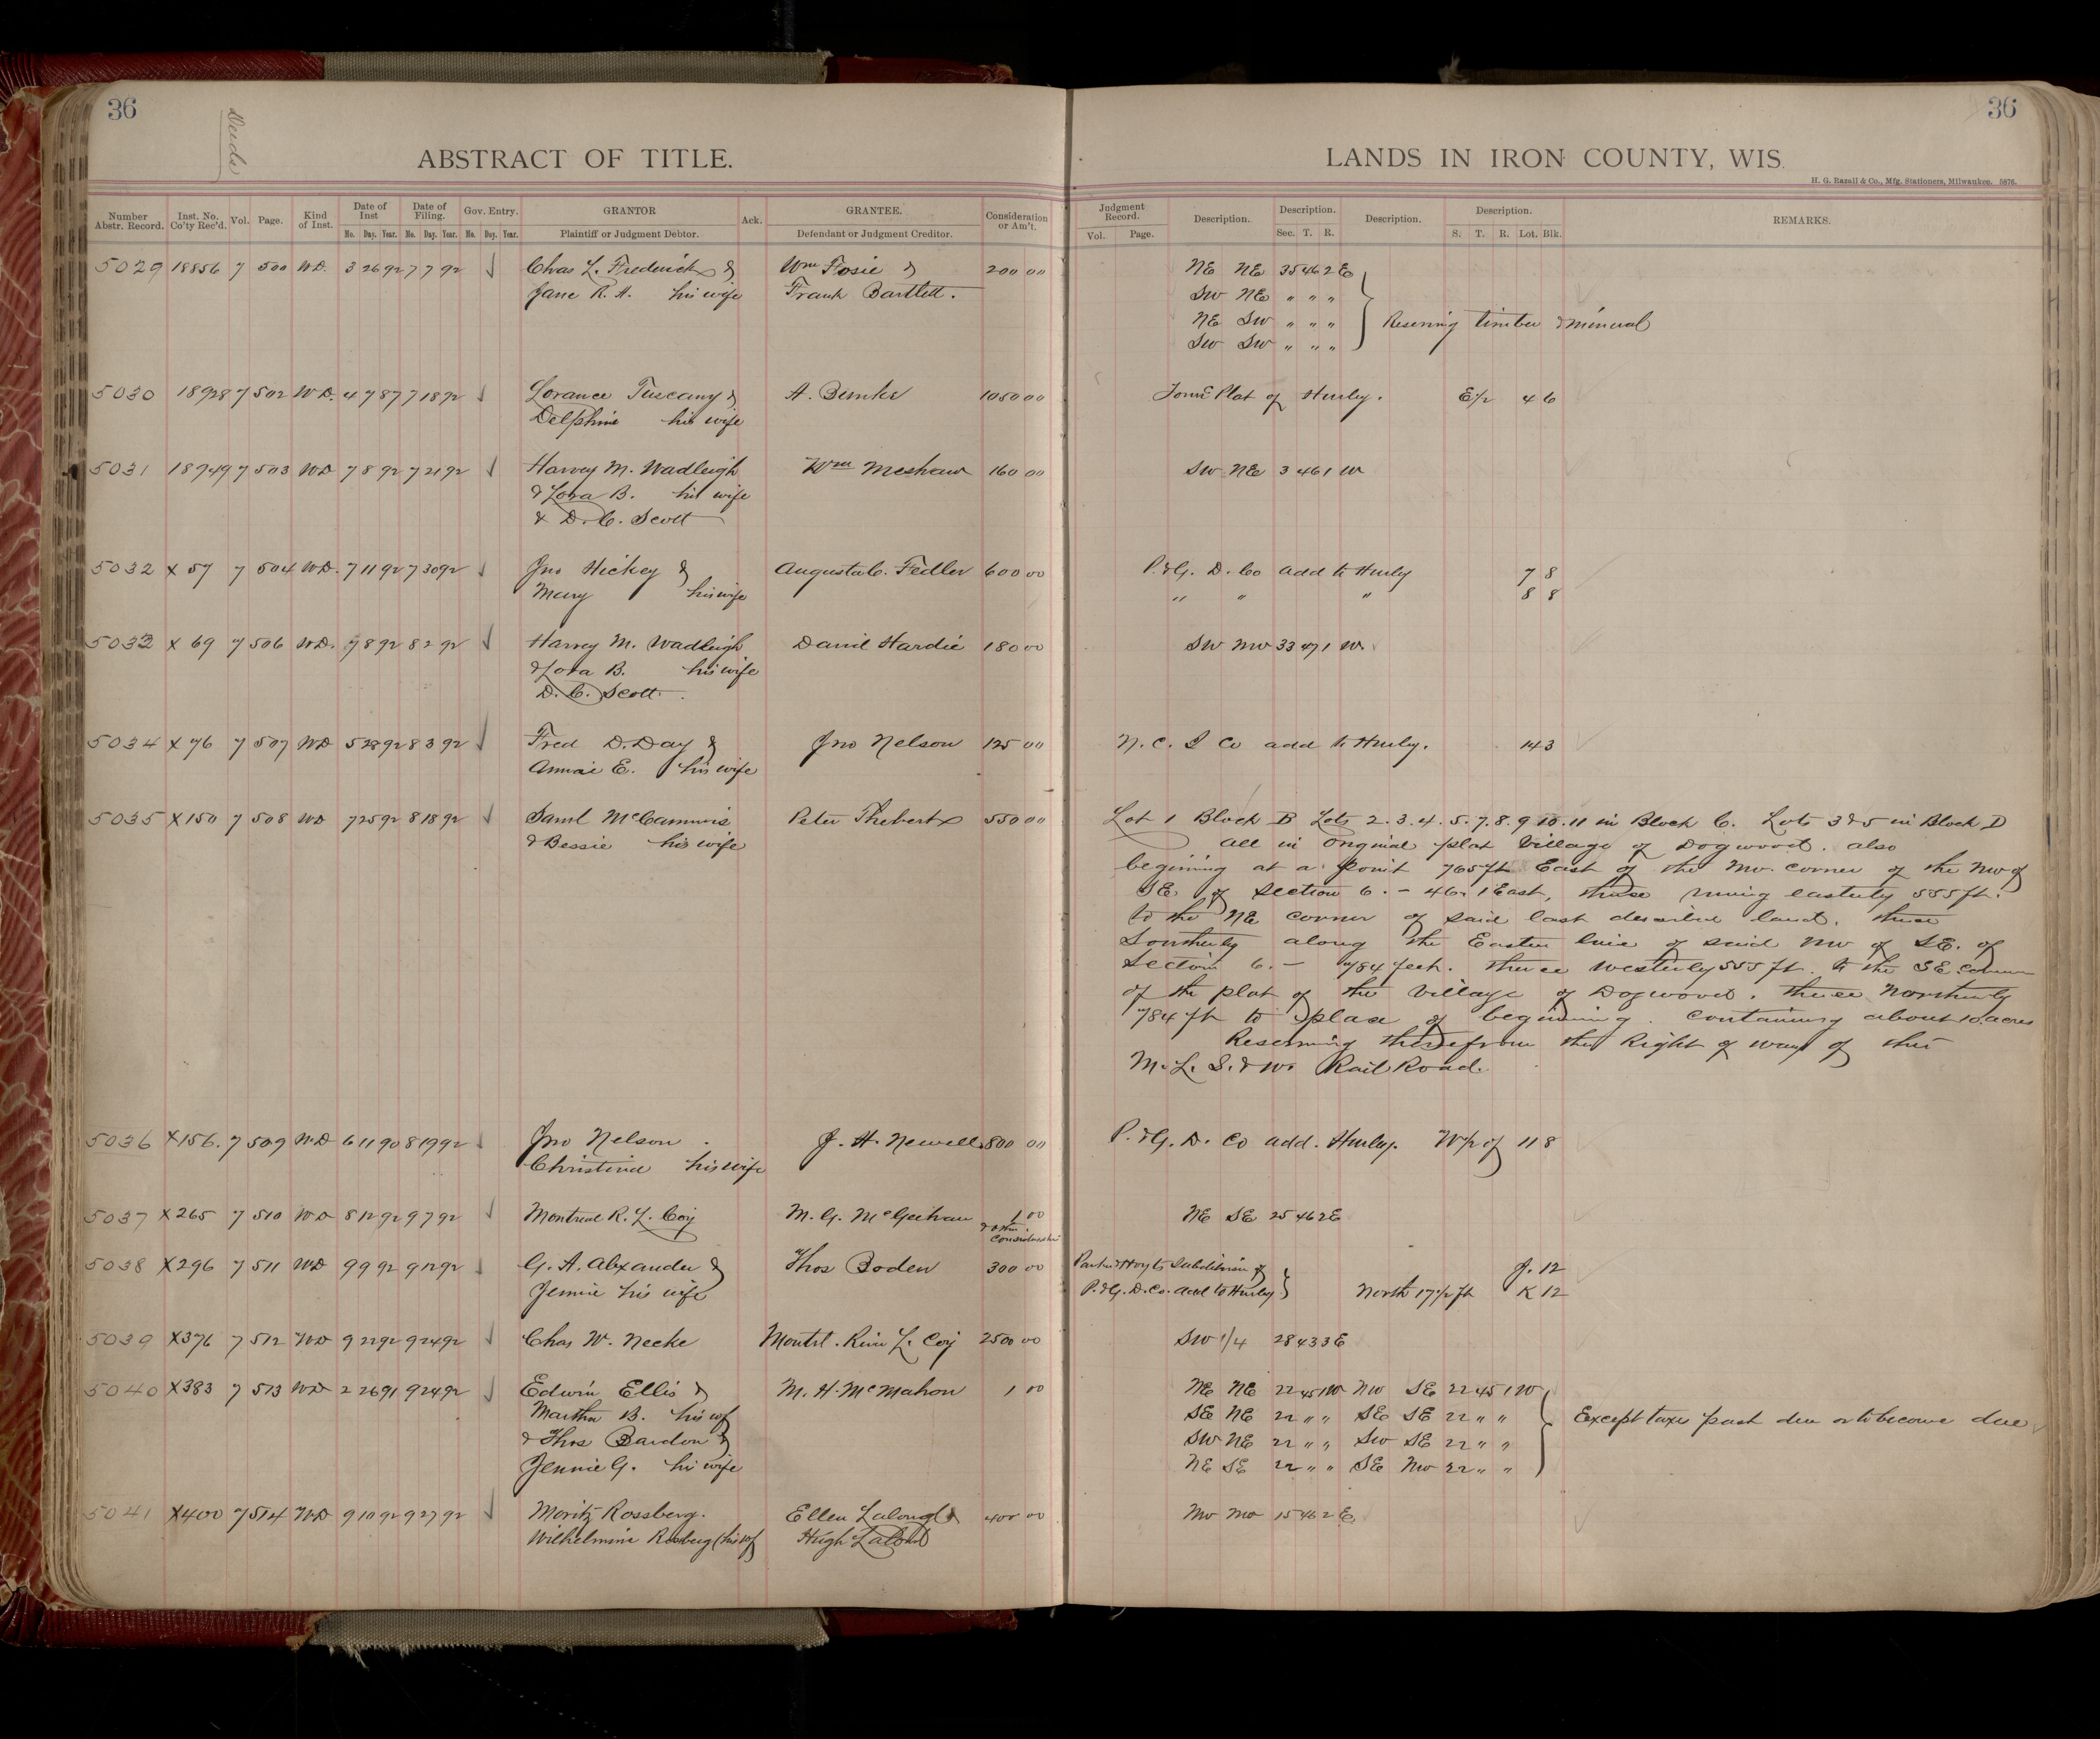 36
Deeds
ABSTRACT OF TITLE.
Number Abstr. Record. Inst. No. Co'ty Rec'd. Vol. Page. Kind of Inst. Date of Inst Mo. Day. Year. Date of Filing. Mo. Day. Year. Gov. Entry. No. Day. Year. GRANTOR Plaintiff or Judgment Debtor. Ack. GRANTEE. Defendant or Judgment Creditor. Consideration or Am't.
5029 18856 7 500 W.D. 3 26 92 7 7 92 Chas L. Frederick & Wm Fosie & 200 00
Jane R. H. his wife Frank Bartlett.
5030 18928 7 502 W.D. 4 7 87 7 18 92 Lorance Tuscany & A. 1050 00
Delphine his wife
5031 18949 7 503 WD 7 8 92 7 21 92 Harvey M. Wadleigh Wm Meshaw 160 00
& Lora B. his wife
& D. C. Scott
5032 X 57 7 504 W.D. 7 11 92 7 30 92 Jno Hickey & Augusta C. Fedler 600 00
Mary his wife
5033 X 69 7 506 W.D. 7 8 92 8 2 92 Harvey M. Wadleigh Daniel Hardie 180 00
& Lora B. his wife
D. C. Scott.
5034 X 76 7 507 WD 5 28 92 8 3 92 Fred D. Day & Jno Nelson 125 00
Annie E. his wife
5035 X150 7 508 WD 7 25 92 8 18 92 Saml McCammis Peter Thebert 550 00
& Bessie his wife
5036 X156. 7 509 W.D 6 11 90 8 19 92 Jno Nelson. J. H. Newell 800 00
Christina his wife
5037 X265 7 510 W.D 8 12 92 9 7 92 Montreal R. L. Coy M. G. McGeehan 1 00
& other
Consideration
5038 X296 7 511 WD 9 9 92 9 12 92 G. A. Alexander & Thos Boden 300 00
Jennie his wife
5039 X376 7 512 WD 9 22 92 9 24 92 Chas W. Necke Montrl. River L. Coy 2500 00
5040 X383 7 513 WD 2 26 91 9 24 92 Edwin Ellis & M. H. McMahon 1 00
Martha B. his wf
& Thos Bardon &
Jennie G. his wife
5041 X400 7 514 WD 9 10 92 9 27 92 Moritz Rossberg. Ellen & 400 00
Wilhelmine Rossberg (his wf) Hugh
36
LANDS IN IRON COUNTY, WIS.
H. G. Razall & Co., Mfg. Stationers, Milwaukee. 5876.
Judgment Record. Vol. Page. Description. Description. Sec. T. R. Description. Description. S. T. R. Lot. Blk. REMARKS.
NE NE 35 46 2 E
SW NE " " "
NE SW " " " Reserving timber & mineral
SW SW " " "
Plat of Hurley. E/2 4 6
SW NE 3 46 1 W
P. & G. D. Co add to Hurly 7 8
" " " 8 8
SW NW 33 47 1 W.
N. C. I Co add to Hurly. 14 3
Lot 1 Block B Lots 2. 3. 4. 5. 7. 8. 9 10. 11 in Block C. Lots 3 & 5 in Block D
all in original plat Village of Dogwood. also
begining at a point 765 ft East of the NW. corner of the NW of
SE of Section 6. - 46. 1 East, thence runing easterly 555 ft.
to the NE corner of said last described land. thence
Southerly along the Easter line of said NW of SE. of
Section 6. - 784 feet. thence westerly 555 ft. to the SE corner
of the plat of the Village of Dogwood. thence Northerly
784 ft to place of beginning. containing about 10. acres
Reserving therefrom the Right of way of the
M. L. S. & W. Rail Road.
P. & G. D. Co add. Hurley. W/2 of 11 8
NE SE 25 46 2 E
Parker & Hoyts Subdivision of J. 12
P. & G. D. Co. add to Hurley North 17 1/2 ft K 12
SW 1/4 28 43 3 E
NE NE 22 45 1W NW SE 22 45 1 W
SE NE 22 " " SE SE 22 " " Except taxes past due or to become due
SW NE 22 " " SW SE 22 " "
NE SE 22 " " SE NW 22 " "
NW NW 15 46 2 E